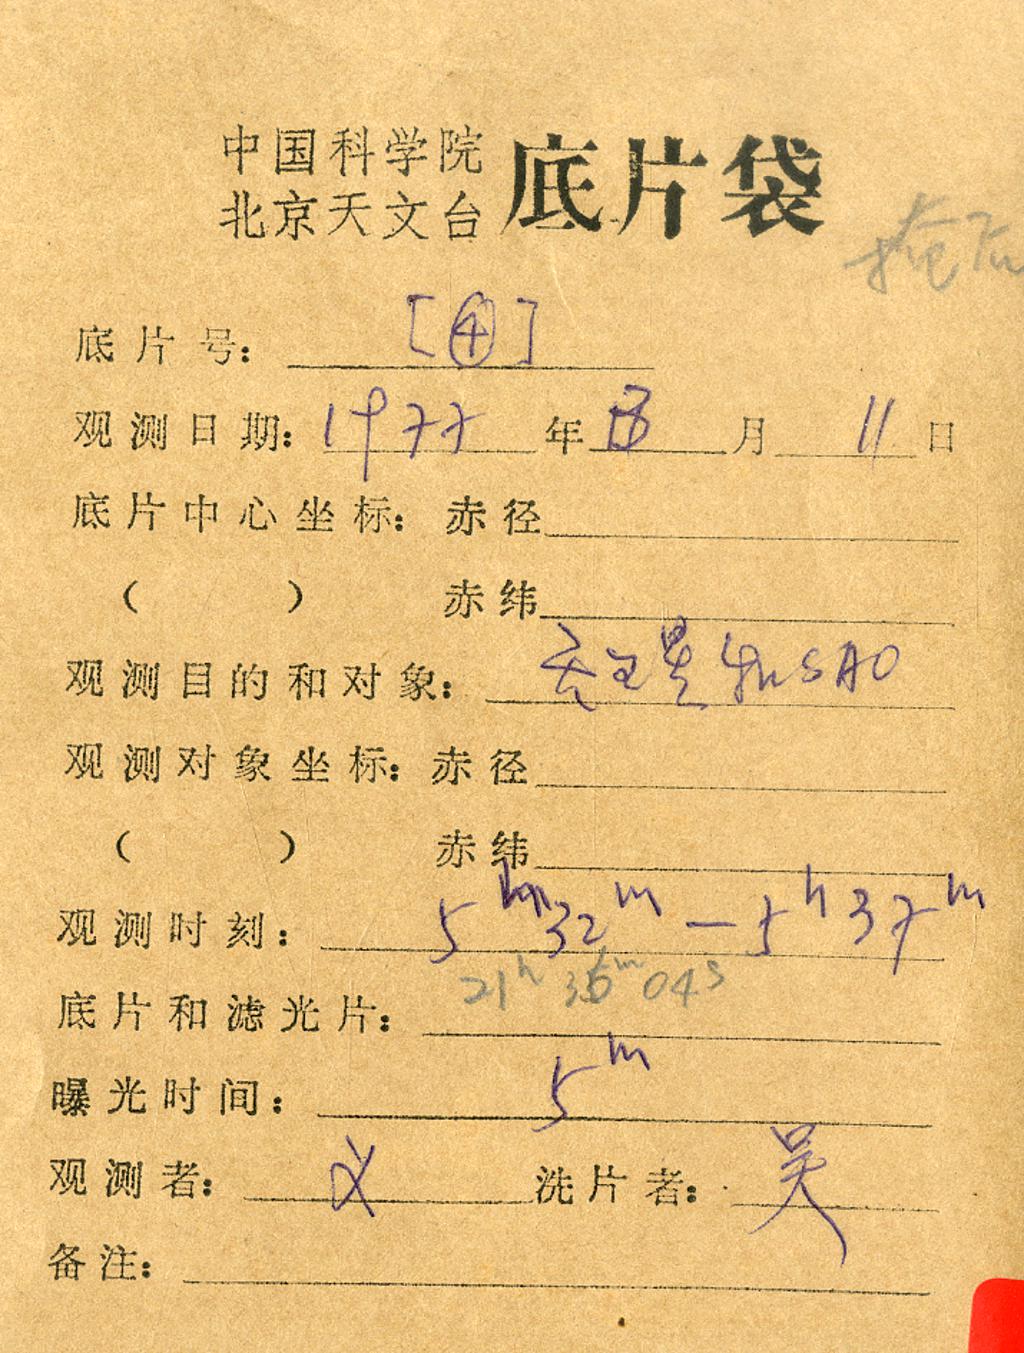 中国科学院
北京天文台 底片袋
掩后
底片号: [④]
观测日期: 1977 年 3 月 11 日
底片中心坐标: 赤径
( ) 赤纬
观测目的和对象: 天王星和SAO
观测对象坐标: 赤径
( ) 赤纬
观测时刻: 5h32m—5h37m
21h 36m 04s
底片和滤光片:
曝光时间: 5m
观测者: 洗片者: 吴
备注: